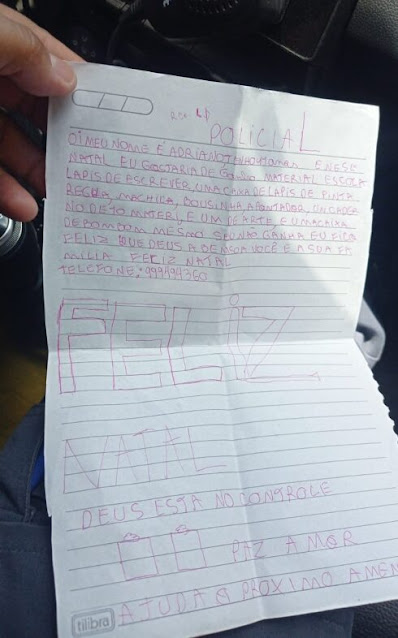 POLICIAL
OI MEU NOME É ADRIANO TENHO ANOS E NESE
NATAL EU GOSTARIA DE GANHA MATERIAL ESCOLA
LAPIS DE ESCREVER, UMA CAIXA DE LAPIS DE PINTA
REGUA, MOCHILA, BOUSINHA, APONTADOR, UM CADER
NO DE 10 MATERI, E UM DE ARTE E UMA CAIXA
DE BOMBOM MESMO SEU NÃO GANHA EU FICA
FELIZ QUE DEUS A BENSOA VOCÊ E A SUA FA
MILIA FELIZ NATAL
TELEFONE:
FELIZ
NATAL
DEUS ESTA NO CONTROLE
PAZ AMOR
AJUDA O PROXIMO AMEM
tilibra